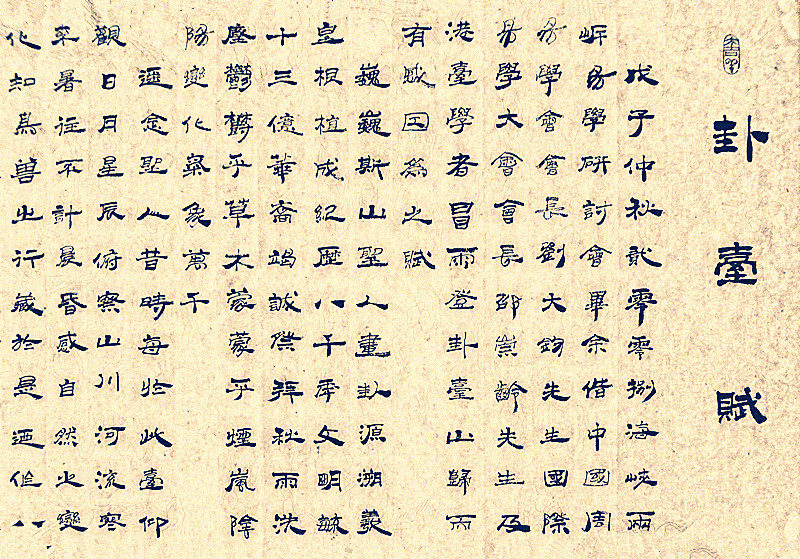 卦臺賦
戊子仲秋貳零零捌海峽兩
岸易學研討會畢余偕中國周
易學會會長劉大鈞先生國際
易學大會會長邵崇齡先生及
港臺學者冒雨登卦臺山歸而
有賦因為之賦
巍巍斯山聖人畫卦源溯羲
皇根植成紀歷八千秊文明毓
十三億華裔竭誠祭拜秋雨洗
塵鬱鬱乎草木蒙蒙乎煙嵐陰
陽變化氣象萬千
遥念聖人昔時每於此臺仰
觀日月星辰俯察山川河流寒
來暑往不計晨昏感自然之變
化知鳥獸之行藏於是迺作八